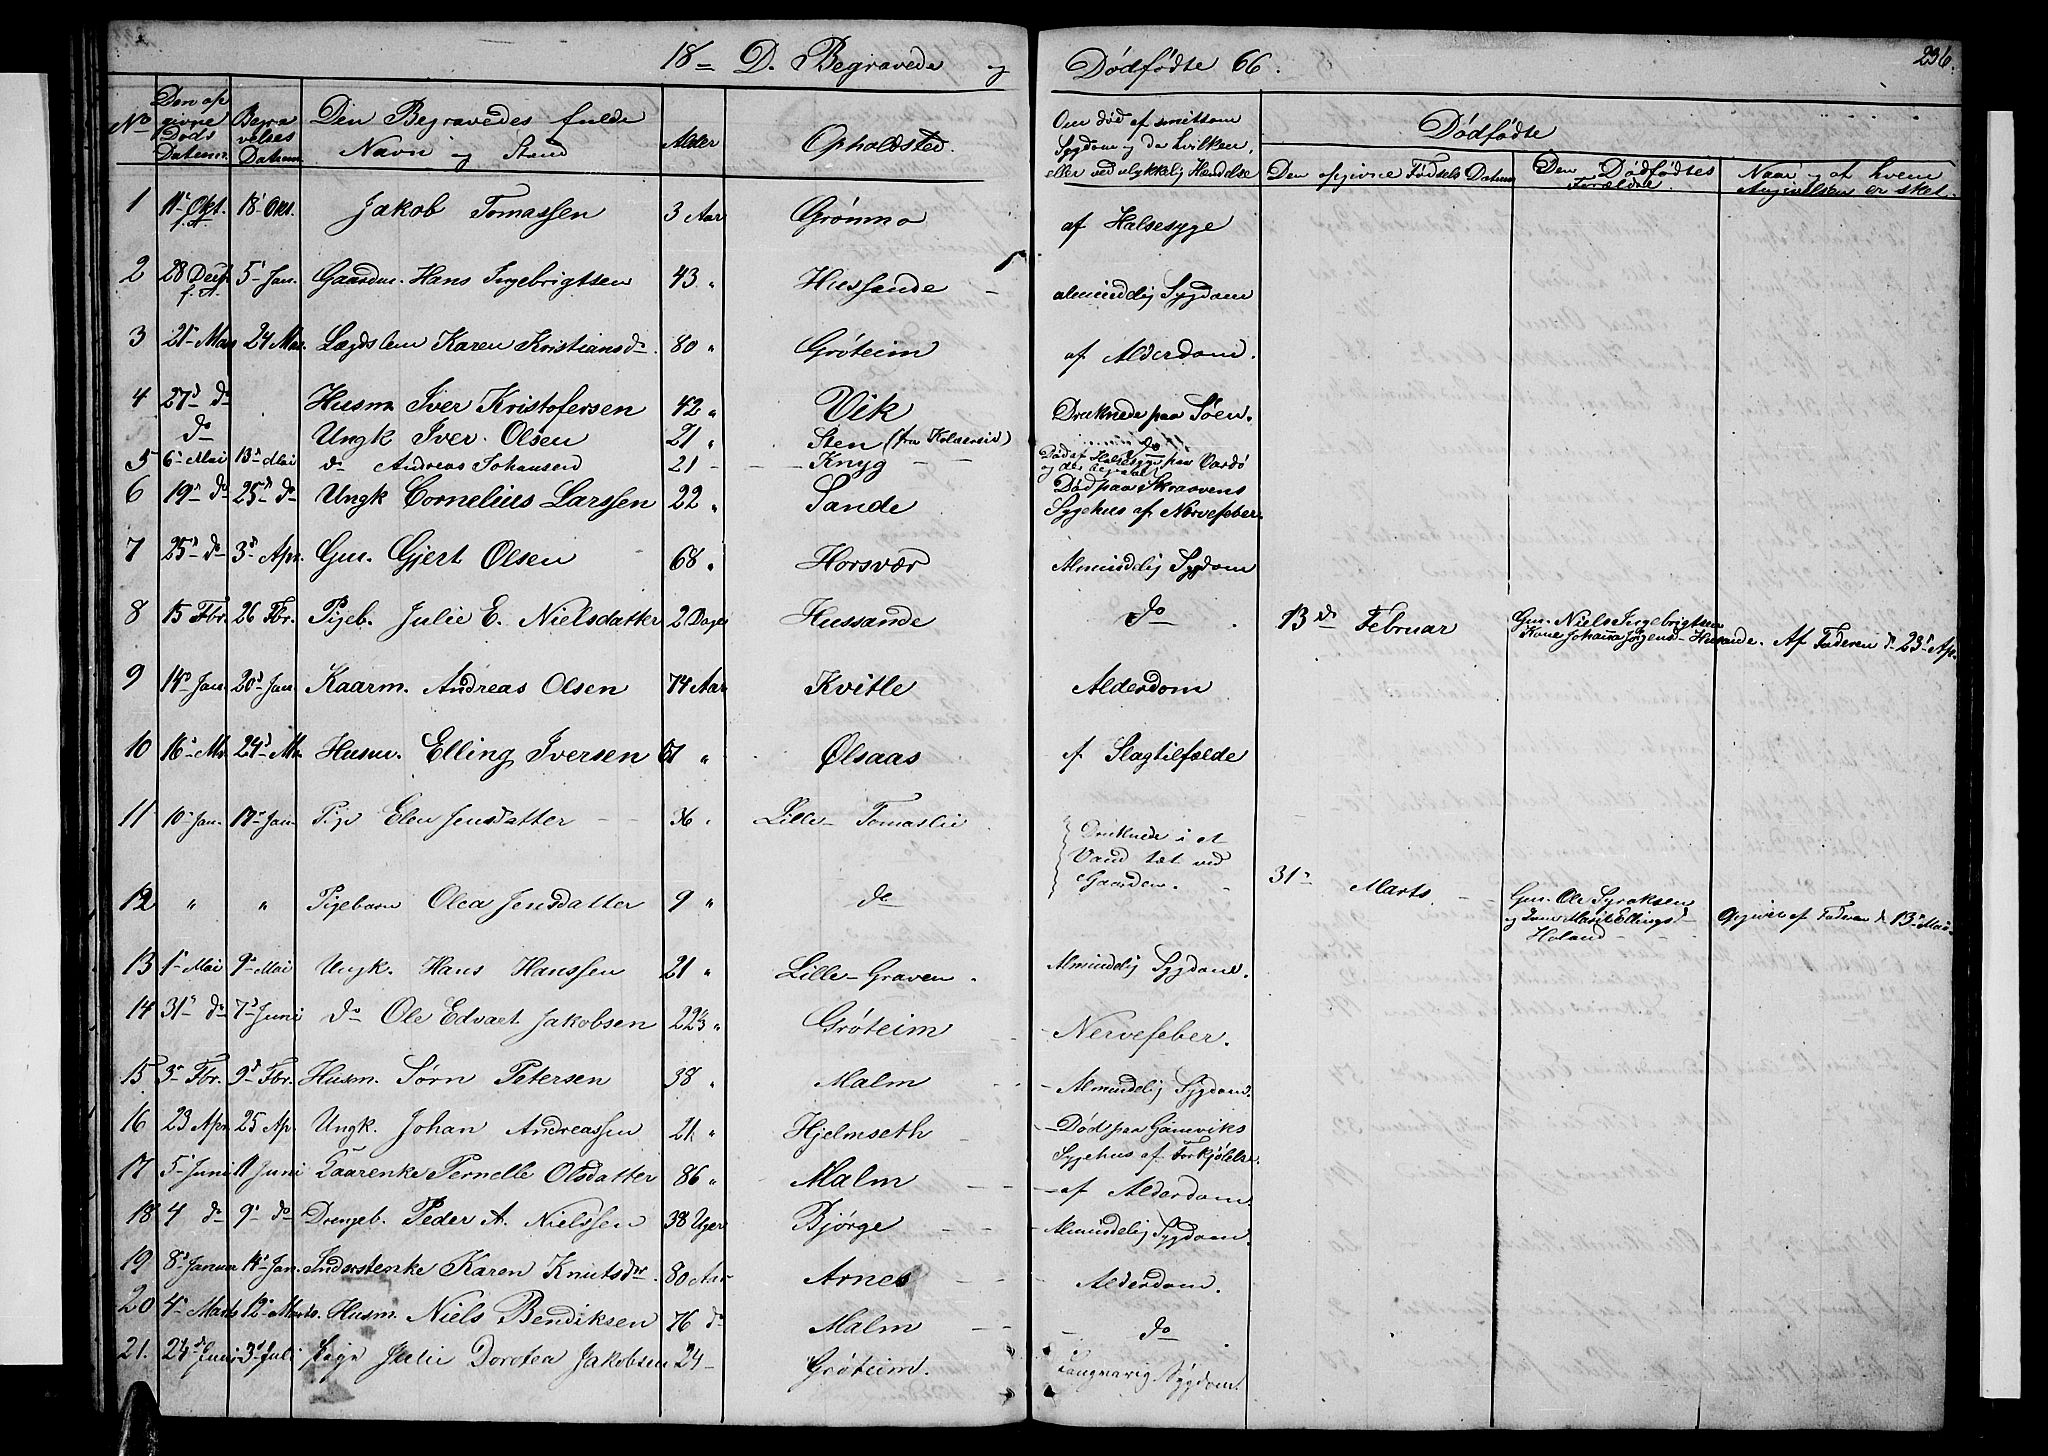 18 D. Begravede og Dødfødte 66. 236.
No Den opgivne Døds Datum. Begravelses Datum. Den Begravedes fulde Navn og Stand Alder Opholdsted. Om død af smitsom Sygdom og da hvilken, eller ved ulykkelig Hændelse Dødfødte
Den opgivne Fødsels Datum Den Dødfødtes Forældre. Naar og af hvem Angivelsen er sket.
1 11t Okt. f. A. 18t Okt. Jakob Tomassen 3 Aar Grömmo af Halsesyge
2 28 Decb. f. A. 5t Jan. Gaardm. Hans Ingebrigtsen 43 " Hussande almindelig Sygdom
3 21t Mars 24 Mar. Lægdslem Karen Kristiansd. 80 " Gröteim af Alderdom.
4 27d do Husm Iver Kristofersen 42 " Vik Druknede paa Søen.
do Ungk Iver Olsen 21 " Sten (fra Kolversid) do
5 6t Mai 13d Mai do Andreas Johansen 21 - Knyg Död af Halsesyge paa Vardö og der begravet
6 19d do 25d do Ungk Cornelius Larssen 22 " Sande Död paa Skraavens Sygehus af Nervefeber.
7 25d do 3d Apr. Gm. Gjert Olsen 68 " Horsvær Almindelig Sygdom
8 15 Fbr. 26 Fbr. Pigeb. Julie E. Nielsdatter 2 Dage Hussande do 13de Februar Gm. Niels Ingebrigtsen Kone Johanna Jörgensd. Hussande. Af Faderen d. 23d Ap.
9 14d Jan. 20d Jan Kaarm. Andreas Olsen 74 Aar Kvitle Alderdom
10 16d Mr. 24d Mr. Husm. Elling Iversen 61 " Ölsaas af Slagtilfælde
11 10t Jan. 17t Jan Pige Elen Jensdatter 36 " Lille-Tomaslie Druknede i et Vand tæt ved Gaarden.
12 " " Pigebarn Olea Jensdatter 9 " do 31t Marts. Gm. Ole Syraksen og Marit Ellingsd. Holand Opgivet af Faderen d. 13d Mai
13 1t Mai 9d Mai Ungk. Hans Hanssen 21 " Lille-Graven Almindelig Sygdom.
14 31t do 7d Juni do Ole Edvart Jakobsen 22 " Gröteim Nervefeber.
15 3d Fbr. 9d Fbr. Husm. Sörn Petersen 38 " Malm Almindelig Sygdom.
16 23 Apr. 25 Ap. Ungk. Johan Andreassen 21 " Hjelmseth Död paa Gamviks Sygehus af Forkjölelse.
17 5t Juni 11 Juni Kaarenke Pernelle Olsdatter 86 " Malm af Alderdom.
18 4 do 9d do Drengeb. Peder A. Nielssen 38 Uger Björge Almindelig Sygdom.
19 8d Januar 14d Jan. Inderstenke Karen Knutsdr 80 Aar Arnes Alderdom.
20 4d Marts 12d Marts. Husm. Niels Bendiksen 76 do Malm do
21. 24d Juni 3d Juli Pige Julie Dorotea Jakobsen 24 - Gröteim. Langvarig Sygdom.